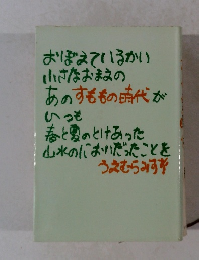 おぼえているかい
小さなおまえの
あのすももの時代が
いつも
春と夏のとけあった
山水のにおいだったことを
うえむらみすず